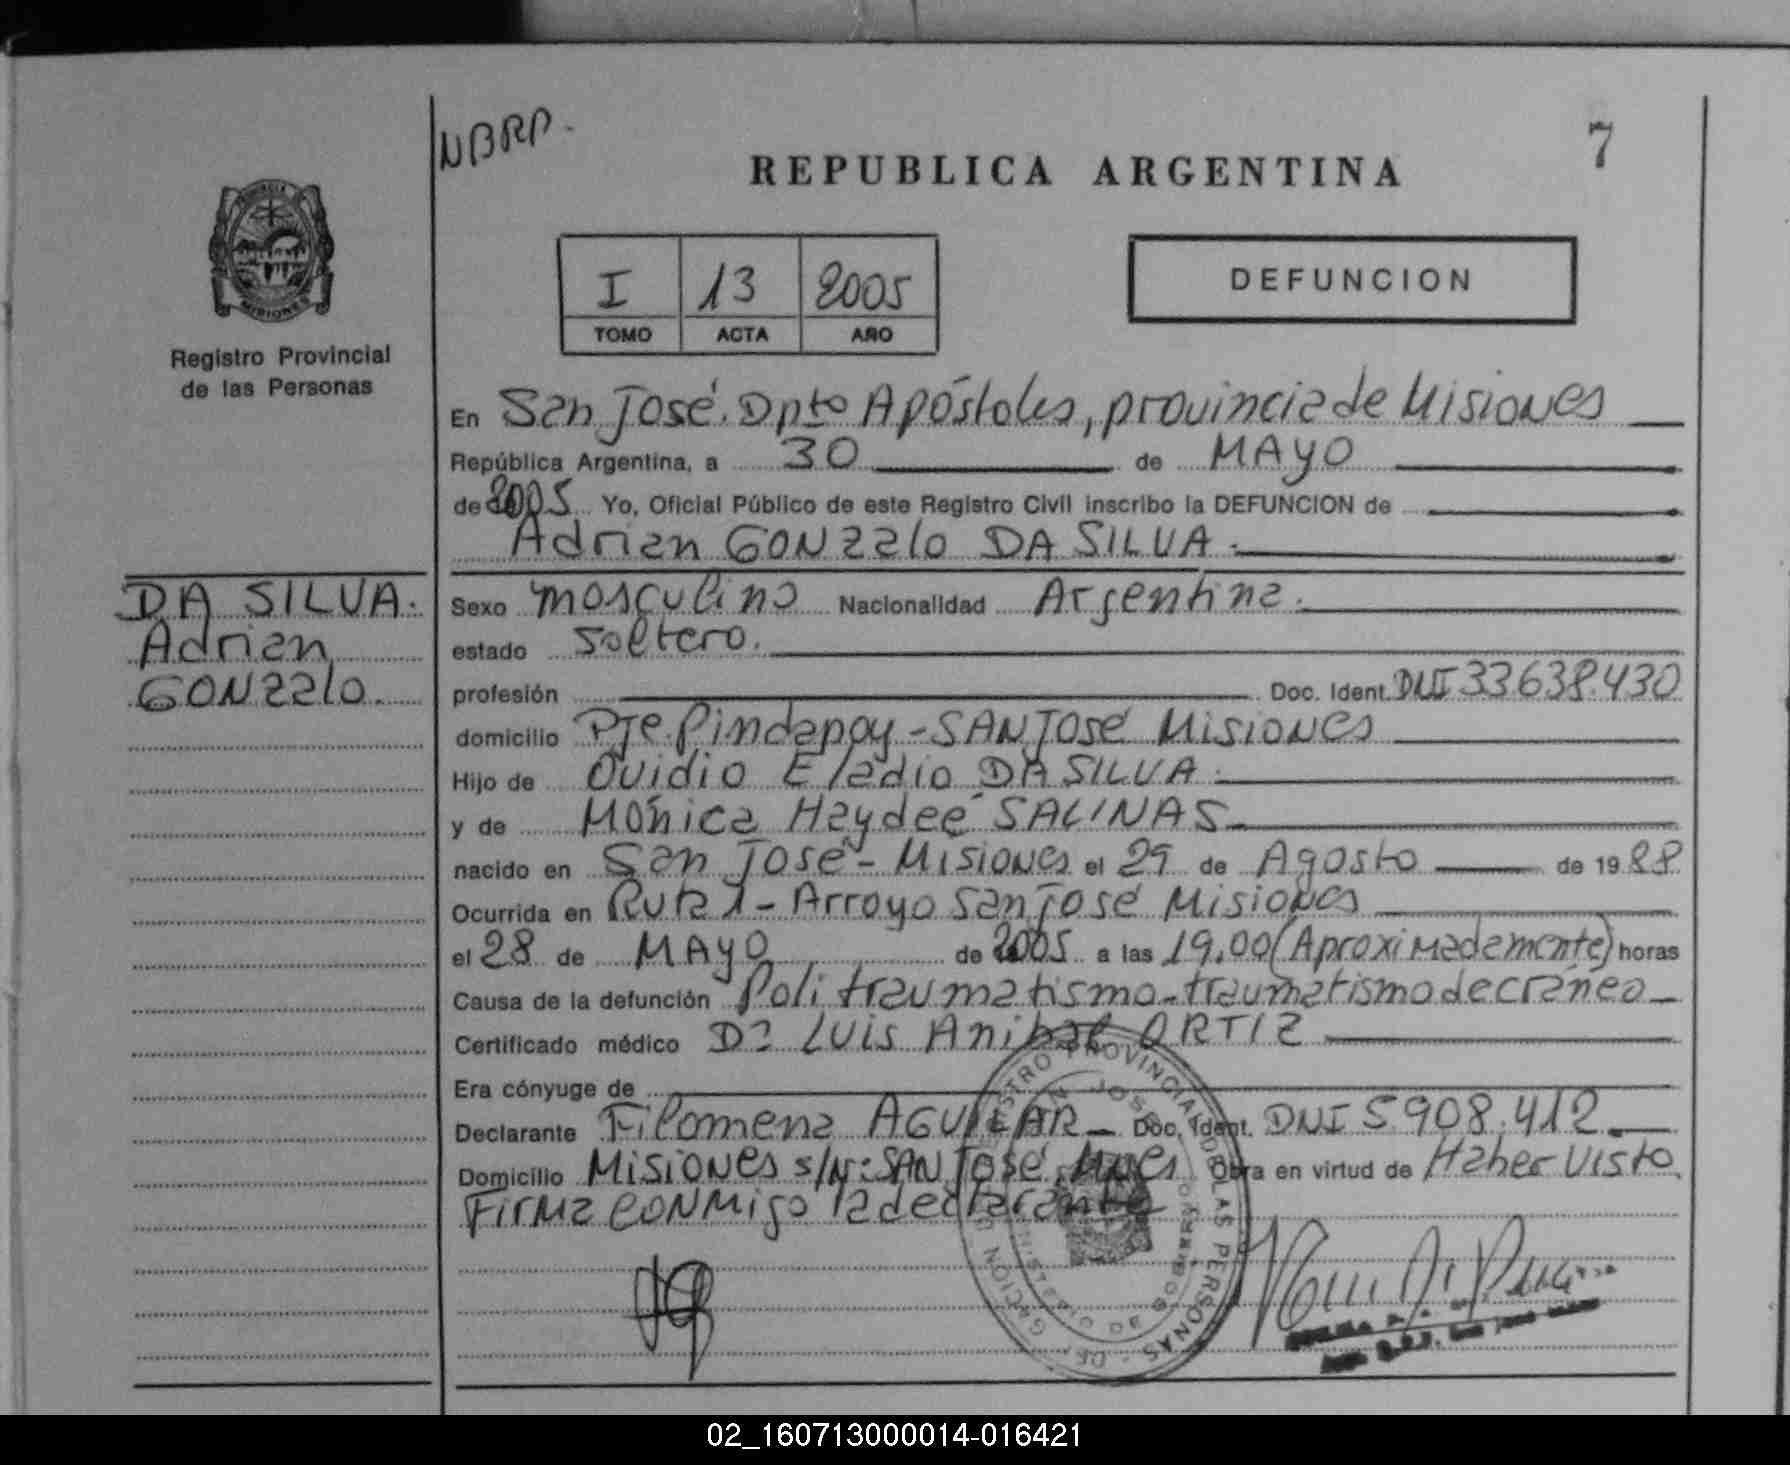 NBRP.
7
REPUBLICA ARGENTINA
I 13 2005
TOMO ACTA AÑO
DEFUNCION
PROVINCIA
MISIONES
Registro Provincial
de las Personas
En San José. Dpto Apóstoles, provincia de Misiones
República Argentina, a 30 de MAYO
de 2005 Yo, Oficial Público de este Registro Civil inscribo la DEFUNCION de
Adrian GONzalo DA SILVA.
DA SILVA.
Adrian
GONzalo.
Sexo masculino Nacionalidad Argentina.
estado soltero.
profesión Doc. Ident. DNI 33638.430
domicilio Pje. Pindapoy - SAN José Misiones
Hijo de Ovidio Eladio DA SILVA.
y de Mónica Haydeé SALINAS
nacido en San José - Misiones el 29 de Agosto de 1988
Ocurrida en Ruta 1 - Arroyo San José Misiones
el 28 de MAYO de 2005 a las 19,00 (Aproximadamente) horas
Causa de la defunción Politraumatismo - traumatismo de cráneo
Certificado médico Dr LUIS Anibal ORTIZ
Era cónyuge de
Declarante Filomena AGUILAR Doc. Ident. DNI 5.908.412
Domicilio Misiones s/Nº: SAN José, Mnes Obra en virtud de Haber visto
Firma conmigo la declarante
REGISTRO PROVINCIAL DE LAS PERSONAS
02_160713000014-016421